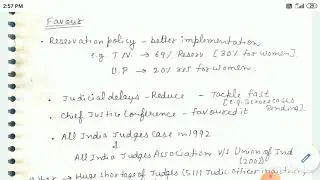 2:57 PM
Favour
• Reservation policy - better implementation
e.g T.N. → 69% Reserv [30% for Women]
U.P → 20% res for women.
• Judicial delays - Reduce - Tackle fast
[e.g. 3 crore cases
Pending]
• Chief Justice Conference - favoured it
• All India Judges Case in 1992
↓
All India Judges Association v/s Union of Ind
(2002)
→ Huge shortage of Judges (5111 Judic officer